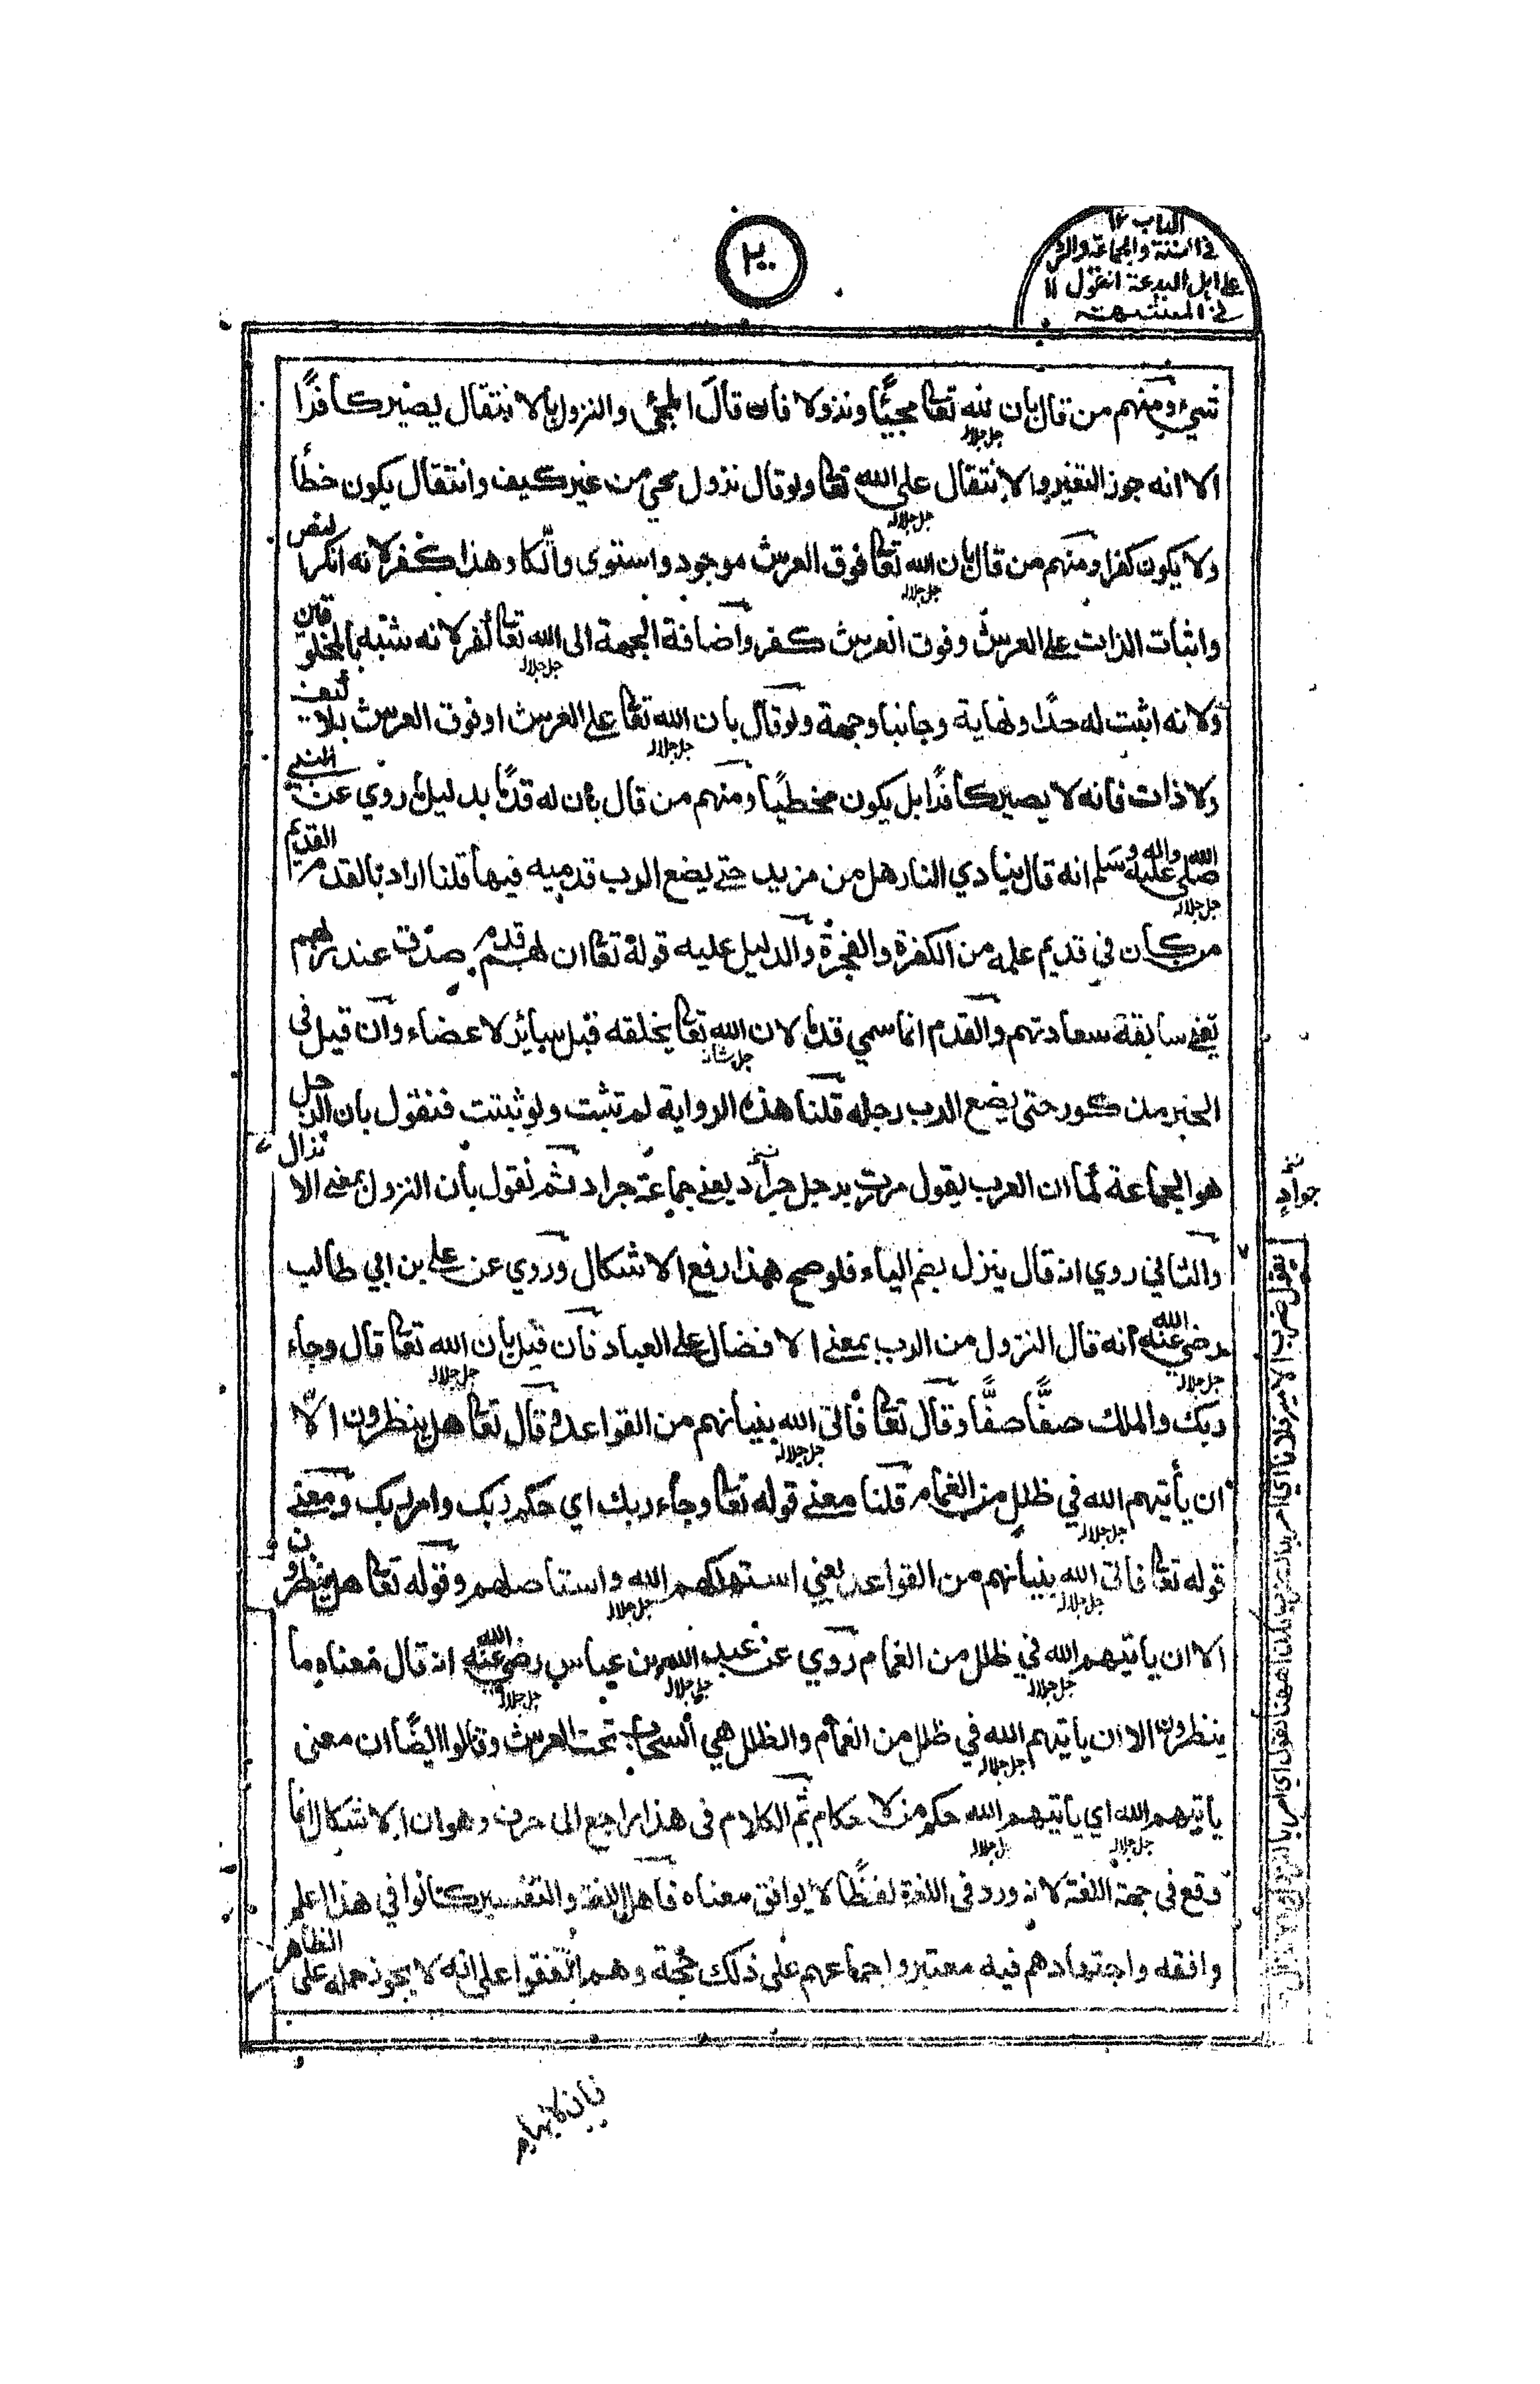 الباب ١٢
في السنة والجماعة والرد
على اهل البدعة القول ١١
في المتشبهة
٢٠٠
شيء ومنهم من قال بان لله تعالى مجيئا ونزولا فان قال المجئ والنزول بالانتقال يصير كافرا
الا انه جوز التغير والانتقال على الله تعالى ولو قال نزول مجئ من غير كيف وانتقال يكون خطأ
ولا يكون كفرا ومنهم من قال بان الله تعالى فوق العرش موجود واستوى وهذا كفر لانه انكر النص
واثبات الذات على العرش وفوق العرش كفر واضافة الجهة الى الله تعالى كفر لانه شبه بالمخلوقات
ولانه اثبت له حدا ونهاية وجانبا وجهة ولو قال بان الله تعالى على العرش او فوق العرش بلا كيف
ولا ذات فانه لا يصير كافرا بل يكون مخطيا ومنهم من قال بان له قدما بدليل ما روي عن النبي
صلى الله عليه واله وسلم انه قال ينادي النار هل من مزيد حتى يضع الرب قدميه فيها قلنا اراد بالقدم القديم
من كان في قديم علمه من الكفرة والفجرة والدليل عليه قوله تعالى ان لهم قدم صدق عند ربهم
يعني سابقة سعادتهم والقدم انما سمي قدما لان الله تعالى يخلقه قبل سائر الاعضاء وان قيل في
الخبر مذكور حتى يضع الرب رجله قلنا هذه الرواية لم تثبت ولو ثبتت فنقول بان الرجل
هو الجماعة لما ان العرب يقول مررت برجل جراد يعني جماعة جراد ثم نقول بأن النزول بمعنى الانزال
والثاني روي انه قال ينزل بضم الياء فلو صح هذا رفع الاشكال وروي عن علي بن ابي طالب
رضي الله عنه انه قال النزول من الرب بمعنى الافضال على العباد فان قيل بان الله تعالى قال وجاء
ربك والملك صفا صفا وقال تعالى فاتى الله بنيانهم من القواعد وقال تعالى هل ينظرون الا
ان يأتيهم الله في ظلل من الغمام قلنا معنى قوله تعالى وجاء ربك اي حكم ربك وامر ربك ومعنى
قوله تعالى فاتى الله بنيانهم من القواعد يعني استهلكهم الله واستاصلهم وقوله تعالى هل ينظرون
الا ان ياتيهم الله في ظلل من الغمام روي عن عبد الله بن عباس رضي الله عنه انه قال معناه ما
ينظرون الا ان ياتيهم الله في ظلل من الغمام والظلل هي السحاب تحت العرش وقالوا ايضا ان معنى
ياتيهم الله اي ياتيهم الله حكم من الاحكام ثم الكلام في هذا راجع الى حرف وهو ان الاشكال انما
وقع في جهة اللغة لانه ورد في اللغة لفظا لا يوافق معناه فاهل اللغة والتفسير كانوا في هذا اعلم
وافقه واجتهادهم فيه معتبر واجماعهم على ذلك حجة وهم اتفقوا على انه لا يجوز حمله على الظاهر
جواد